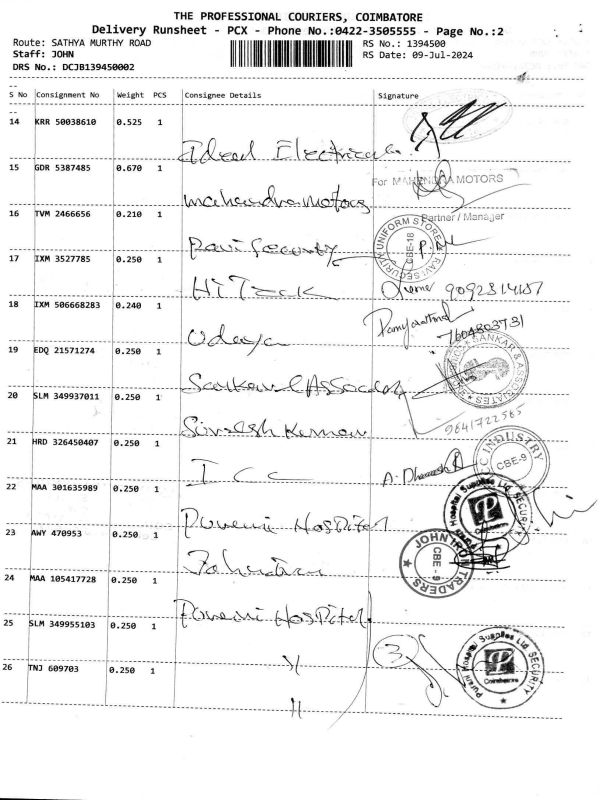 THE PROFESSIONAL COURIERS, COIMBATORE
Delivery Runsheet - PCX - Phone No.:0422-3505555 - Page No.:2
Route: SATHYA MURTHY ROAD RS No.: 1394500
Staff: JOHN RS Date: 09-Jul-2024
DRS No.: DCJB139450002
S No Consignment No Weight PCS Consignee Details Signature
14 KRR 50038610 0.525 1
Ideal Electricals
15 GDR 5387485 0.670 1
For MAHENDRA MOTORS
Mahendra Motors
Partner / Manager
16 TVM 2466656 0.210 1
Ravi Security
RAVI SECURITY UNIFORM STORE CBE-18
17 IXM 3527785 0.250 1
Hi Teck 9092814187
18 IXM 506668283 0.240 1
Udaya 7604803731
19 EDQ 21571274 0.250 1
Sankar & Associates
SANKAR & ASSOCIATES
20 SLM 349937011 0.250 1
Suresh Kumar 9641722565
21 HRD 326450407 0.250 1
ICC
INDUSTRY CBE-9
22 MAA 301635989 0.250 1
Purani Hospital
Purani Hospital Supplies Ltd SECURITY Coimbatore
23 AWY 470953 0.250 1
JOHN IRON TRADERS CBE - 9
24 MAA 105417728 0.250 1
Purani Hospital
25 SLM 349955103 0.250 1
〃
3
Purani Hospital Supplies Ltd SECURITY Coimbatore
26 TNJ 609703 0.250 1
〃